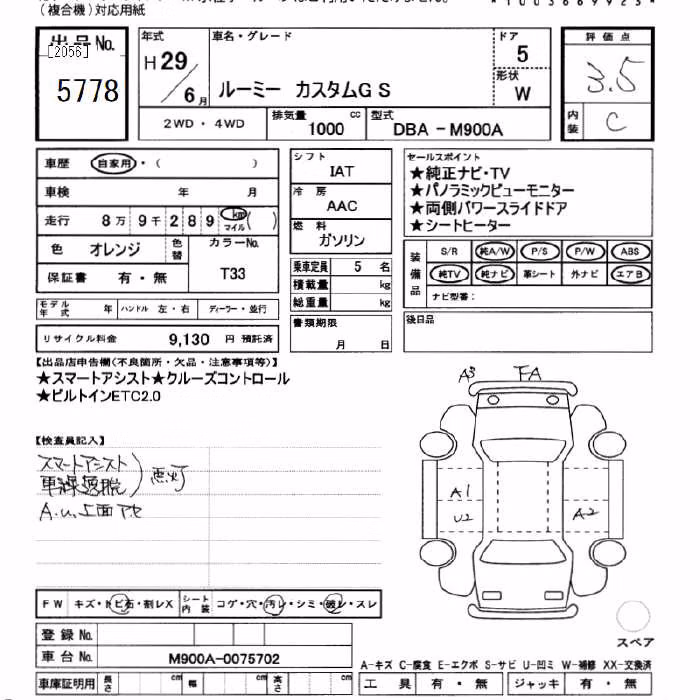 (複合機)対応用紙
*1003669923*
出品No.
[2056]
5778
年式
H 29
/ 6 月
車名・グレード
ルーミー カスタムGS
ドア
5
形状
W
2WD・4WD
排気量 cc
1000
型式
DBA - M900A
評価点
3.5
内装
C
車歴 自家用・( )
車検 年 月
走行 8万9千289 km マイル ( )
色 オレンジ 色替
カラーNo.
T33
保証書 有・無
モデル年式 年 ハンドル 左・右 ディーラー・並行
リサイクル料金 9,130 円 預託済
シフト
IAT
冷房
AAC
燃料
ガソリン
乗車定員 5 名
積載量 kg
総重量 kg
書類期限
月 日
セールスポイント
★純正ナビ・TV
★パノラミックビューモニター
★両側パワースライドドア
★シートヒーター
装備品
S/R 純A/W P/S P/W ABS
純TV 純ナビ 革シート 外ナビ エアB
ナビ型番:
後日品
【出品店申告欄(不良箇所・欠品・注意事項等)】
★スマートアシスト★クルーズコントロール
★ビルトインETC2.0
【検査員記入】
スマートアシスト
車線逸脱
点灯
A.u.
F W キズ・トビ石・割レX シート内装 コゲ・穴・汚レ・シミ・破レ・スレ
登録No.
車台No. M900A-0075702
車庫証明用 長さ cm 幅 cm 高さ cm
A3 FA
A1
U2
A2
スペア
A-キズ C-腐食 E-エクボ S-サビ U-凹ミ W-補修 XX-交換済
工具 有・無 ジャッキ 有・無